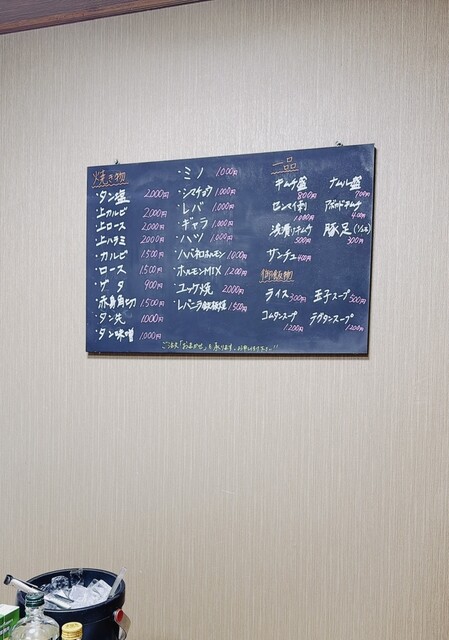 焼き物
・タン塩 2000円
・上カルビ 2000円
・上ロース 2000円
・上ハラミ 2000円
・カルビ 1500円
・ロース 1500円
・ゲタ 900円
・赤身角切 1500円
・タン先 1000円
・タン味噌 1000円
・ミノ 1000円
・シマチョウ 1000円
・レバ 1000円
・ギャラ 1000円
・ハツ 1000円
・ハバネロホルモン 1000円
・ホルモンMIX 1200円
・ユッケ焼 2000円
・レバニラ鉄板焼 1500円
一品
キムチ盛 800円 ナムル盛 700円
センマイ刺 1000円 アボカドキムチ 400円
浅漬けキムチ 500円 豚足(1/2) 300円
サンチュ 400円
御飯物
ライス 300円 玉子スープ 500円
コムタンスープ 1200円 テグタンスープ 1200円
ご注文「おまかせ」も承ります。